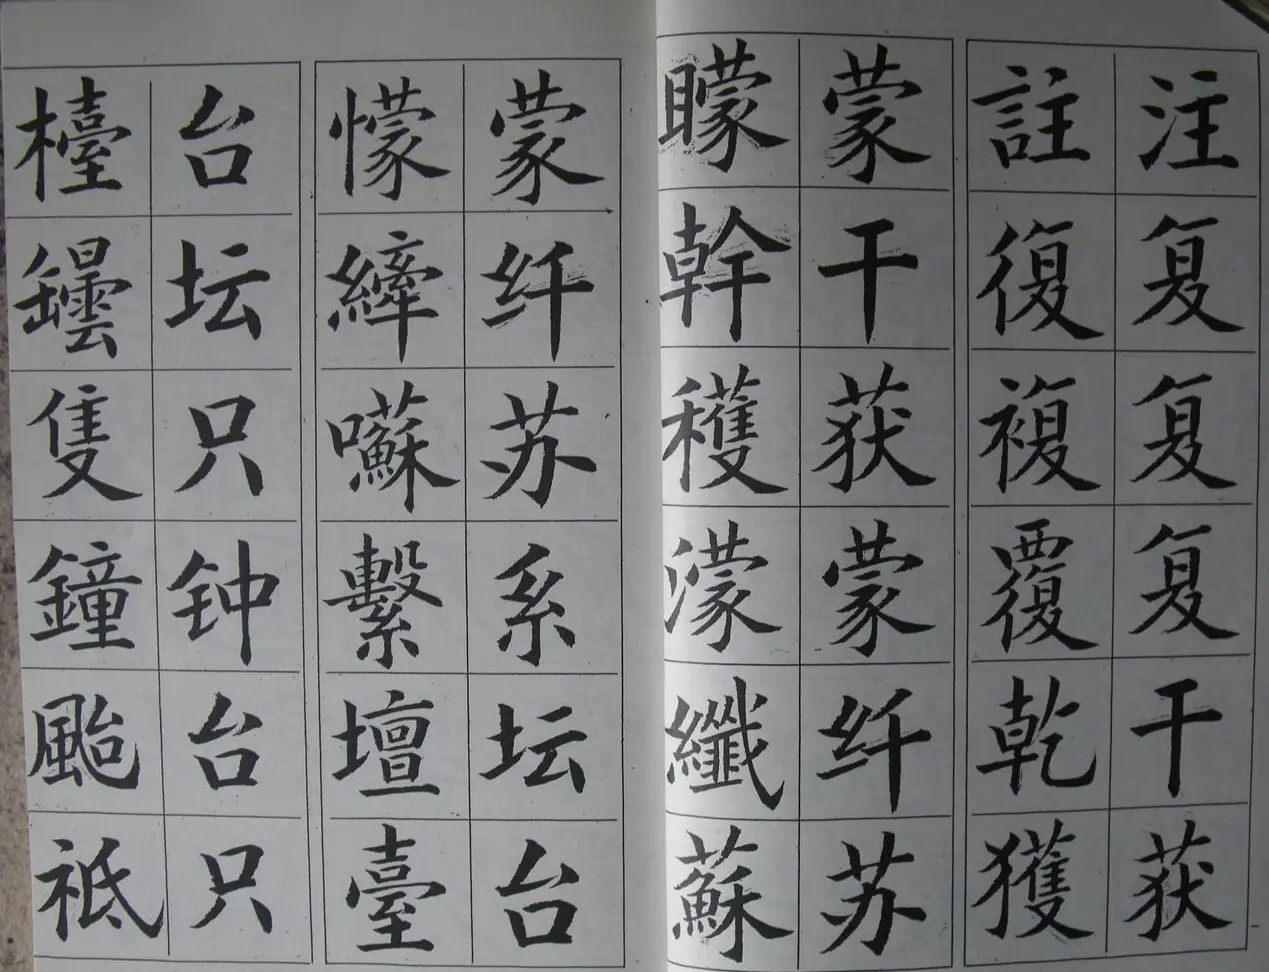 註 注
復 复
複 复
覆 复
乾 干
獲 获
矇 蒙
幹 干
穫 获
濛 蒙
纖 纤
蘇 苏
懞 蒙
縴 纤
囌 苏
繫 系
壇 坛
臺 台
檯 台
罎 坛
隻 只
鐘 钟
颱 台
祗 只